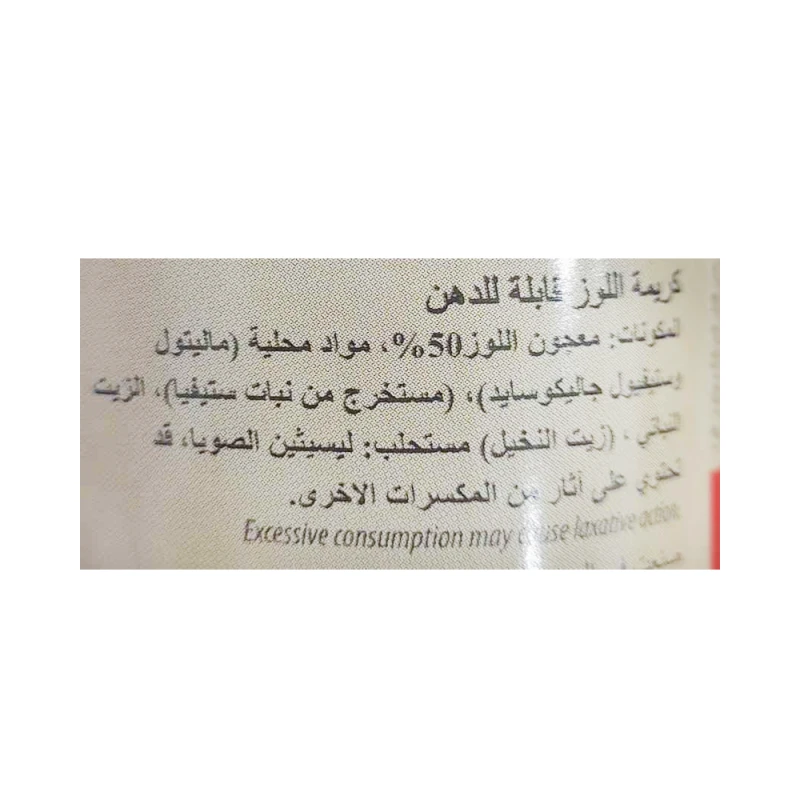 كريمة اللوز قابلة للدهن
المكونات: معجون اللوز50%، مواد محلية (ماليتول
وستيفيول جاليكوسايد)، (مستخرج من نبات ستيفيا)، الزيت
النباتي ، (زيت النخيل) مستحلب: ليسيثين الصويا، قد
تحتوي على آثار من المكسرات الاخرى.
Excessive consumption may cause laxative action.